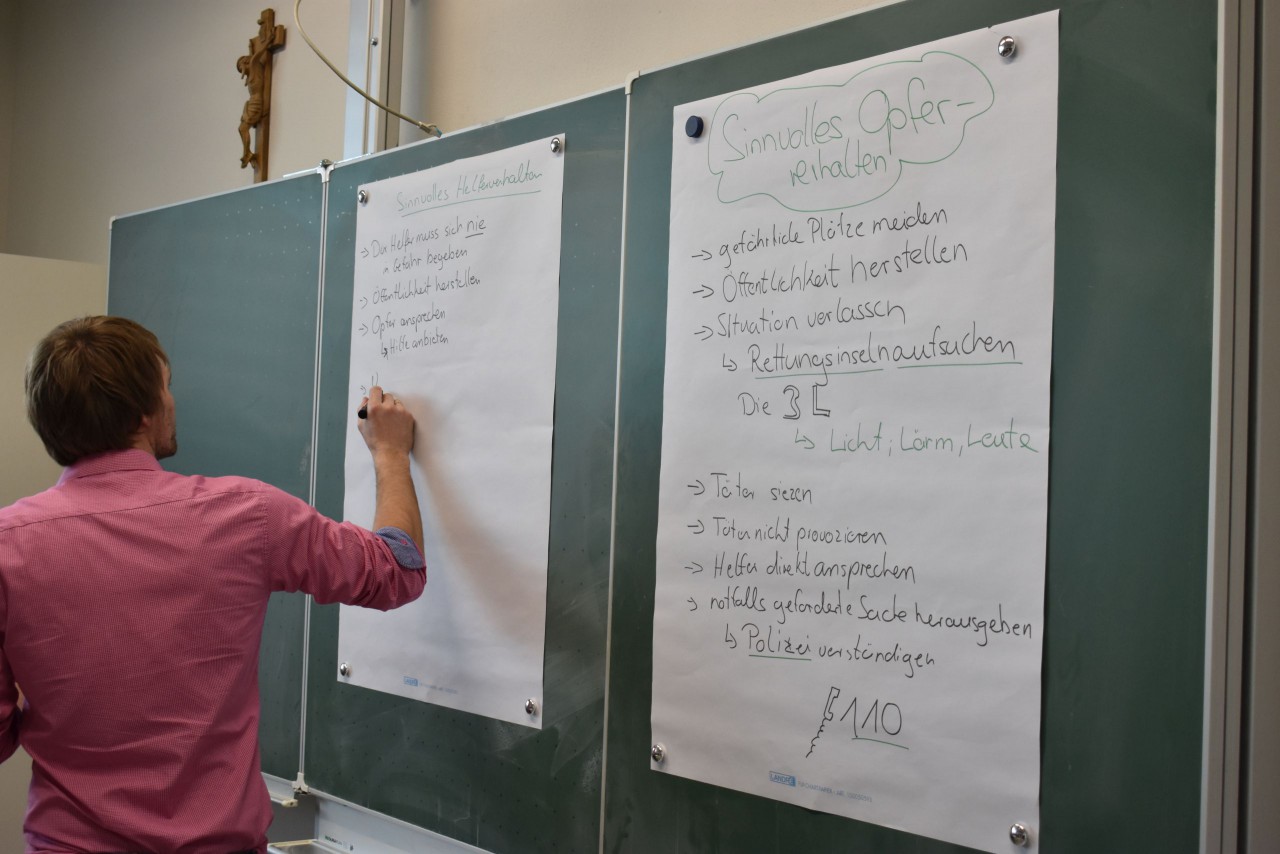 Sinnvolles Helferverhalten
→ Der Helfer muss sich nie
in Gefahr begeben
→ Öffentlichkeit herstellen
→ Opfer ansprechen
↳ Hilfe anbieten
→
LANDRÉ
Sinnvolles Opfer-
verhalten
→ gefährliche Plätze meiden
→ Öffentlichkeit herstellen
→ Situation verlassen
↳ Rettungsinseln aufsuchen
Die 3 L
↳ Licht, Lärm, Leute
→ Täter siezen
→ Täter nicht provozieren
→ Helfer direkt ansprechen
→ notfalls geforderte Sache herausgeben
↳ Polizei verständigen
110
LANDRÉ